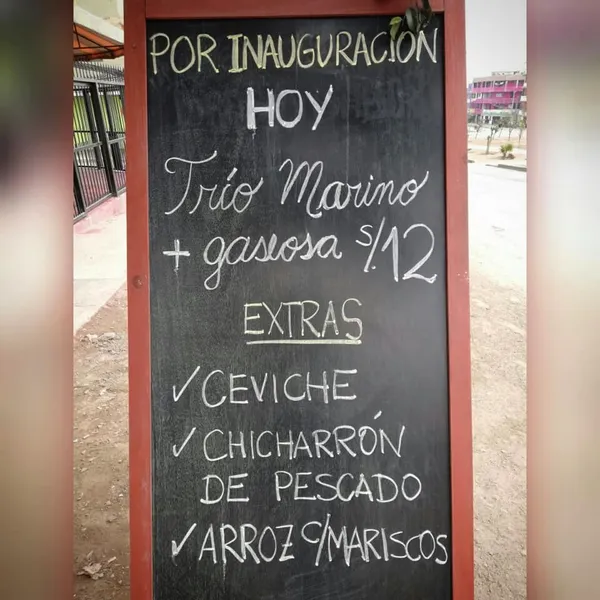 POR INAUGURACIÓN
HOY
Trío Marino
+ gaseosa s/.12
EXTRAS
✓ CEVICHE
✓ CHICHARRÓN
DE PESCADO
✓ ARROZ c/MARISCOS